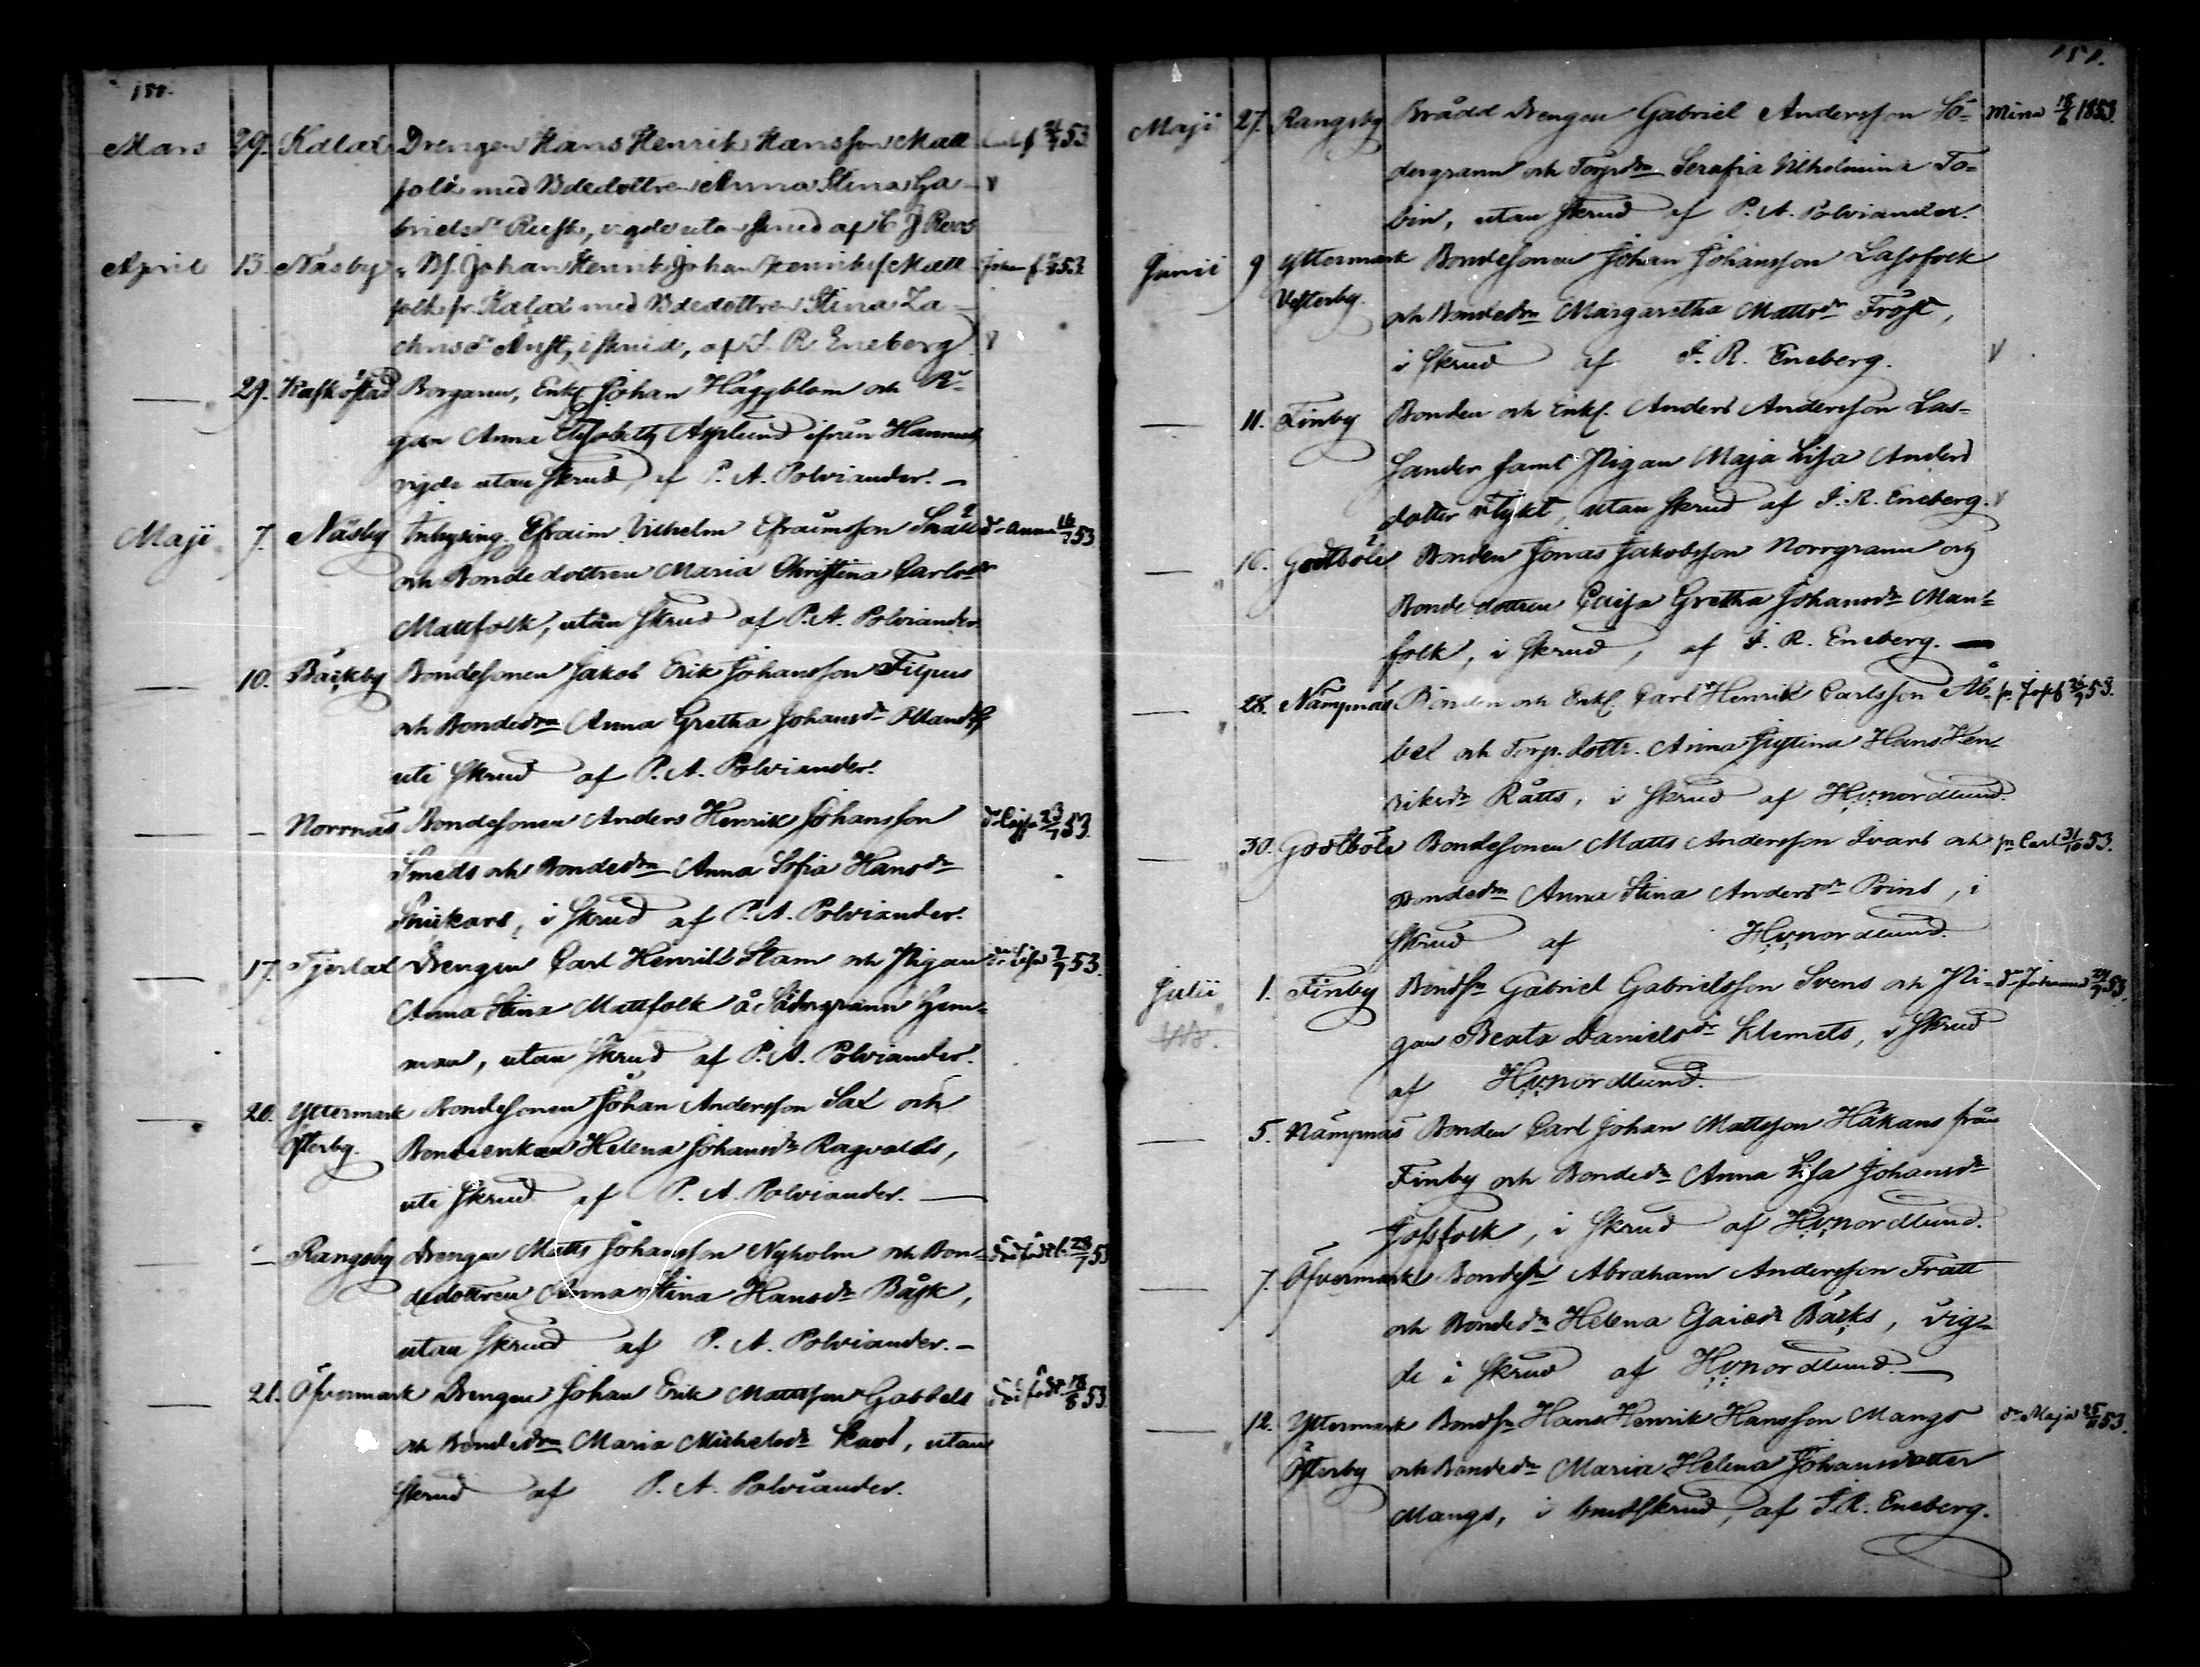 150.
Mars 29. Kalax Drengen Hans Henrik Hansson Matt
folk med Bdedottren Anna Stina Ga-
brielsdr vigde utan skrud af
April 13. Näsby Bs. Johan Henrik Johan Henriks. Matt
folk fr. Kalax med Bdedottren Stina Za-
chrisdr i skrud, af I. R. Eneberg
29. Kaskö stad Borgaren, Enkl. Johan Häggblom och Pi-
gan Anna Elisabeth Asplund ifrån
vigde utan skrud, af P. A. Polviander.
Maji 7. Näsby Inhysing Efraim Vilhelm Efraimsson dr Anna 16/7 53
och Bondedottren Maria Christina Carlsdr
Mattfolk, utan skrud af P. A. Polviander
10. Bäckby Bondesonen Jakob Erik Johansson Filpus
och Bondedrn Anna Gretha Johansdr
uti skrud af P. A. Polviander.
Norrnäs Bondesonen Anders Henrik Johansson dr Cajsa 23/7 53.
Smeds och Bondedrn Anna Sofia Hansdr
Snickars, i skrud af P. A. Polviander.
17. Tjerlax Drengen Carl Henrik Stam och Pigan dr Lisa 2/7 53.
Anna Stina Mattfolk å Södergrann Hem-
man, utan skrud af P. A. Polviander.
20. Yttermark Bondesonen Johan Andersson Sax och
Österby. Bondeenkan Helena Johansdr Ragvalds,
uti skrud af P. A. Polviander.
Rangsby Drengen Matts Johansson Nyholm och Bon- 28/7 53
dedottren Anna Stina Hansdr Båsk,
utan skrud af P. A. Polviander.
21. Öfvermark Drengen Johan Erik Mattsson Gabbels 18/8 53.
och Bondedrn Maria Michelsdr utan
skrud af P. A. Polviander.
151.
Maji 27. Rangsby Brådd Drengen Gabriel Andersson Sö- Mina 18/6 1853.
dergrann och Torpdrn Serafia Vilhelmina To-
bin, utan skrud af P. A. Polviander.
Junii 9 Yttermark Bondesonen Johan Johansson Lassfolk
Vesterby. och Bondedrn Margaretha Mattsdr Frost,
i skrud af I. R. Eneberg.
11. Finby Bonden och Enkl. Anders Andersson Las-
sander samt Pigan Maja Lisa Anders
dotter Flykt, utan skrud af I. R. Eneberg.
16. Gottböle Bonden Jonas Jakobsson Norrgrann och
Bondedottren Caisa Gretha Johansdr Man-
folk, i skrud, af I. R. Eneberg.
28. Nämpnäs Bonden och Enkl. Carl Henrik Carlsson Åb- sn Josef 26/7 53.
bel och Torp. dottr. Anna Justina Hans Hen-
riksdr Rätts, i skrud af Hj. Nordlund.
30. Gottböle Bondesonen Matts Andersson Ivars och sn Carl 31/10 53.
Bondedrn Anna Stina Andersdr Prins, i
skrud af Hj. Nordlund.
Julii 1. Finby Bondsn Gabriel Gabrielsson Svens och Pi- dr Johanna 24/9 53.
gan Beata Danielsdr Klemets, i skrud
af Hj. Nordlund.
5. Nämpnäs Bonden Carl Johan Mattsson Håkans från
Finby och Bondedr Anna Lisa Johansdr
Jossfolk, i skrud af Hj. Nordlund.
7. Öfvermark Bondesn Abraham Andersson Fratt
och Bondedr Helena Esaiedr Bäcks, vig-
de i skrud af Hj. Nordlund.
12. Yttermark Bondsn Hans Henrik Hansson Mangs dr Maja 25/11 53.
Österby och Bondedr Maria Helena Johansdotter
Mangs, i brudskrud, af I. R. Eneberg.